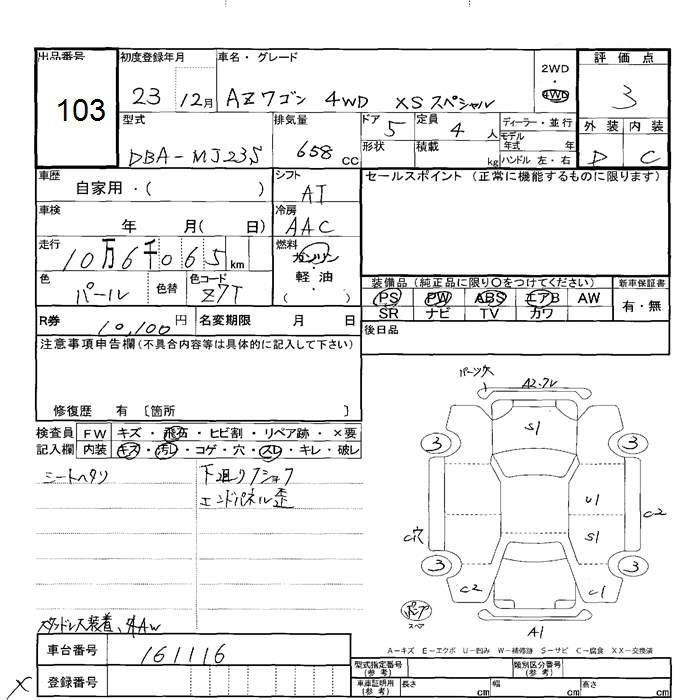 出品番号 初度登録年月 車名・グレード 2WD 評価点
103 23 12月 AZワゴン 4WD XSスペシャル 4WD 3
型式 排気量 ドア 5 定員 4 人 ディーラー・並行 外装 内装
DBA-MJ23S 658 cc 形状 積載 kg モデル年式 年 D C
ハンドル 左・右
車歴 自家用・( ) シフト AT セールスポイント (正常に機能するものに限ります)
車検 年 月( 日) 冷房 AAC
走行 10万6千065 km 燃料 ガソリン・軽油 ( )
色 パール 色替 色コード Z7T 装備品 (純正品に限り○をつけてください) 新車保証書
PS PW ABS エアB AW 有・無
R券 10,100円 名変期限 月 日 SR ナビ TV カワ
注意事項申告欄(不具合内容等は具体的に記入して下さい) 後日品
修復歴 有 〔箇所 〕
検査員 FW キズ・飛石・ヒビ割・リペア跡・×要
記入欄 内装 キズ・汚レ・コゲ・穴・スレ・キレ・破レ
シートヘタリ 下廻り
エンドパネル歪
A2
S1
3 3
U1
C穴 S1 C2
3 3
C2 C1
A1
スタッドレス装着、
A-キズ E-エクボ U-凹み W-補修跡 S-サビ C-腐食 XX-交換済
車台番号 161116 型式指定番号(参考) 類別区分番号(参考)
× 登録番号 車庫証明用(参考) 長さ cm 幅 cm 高さ cm